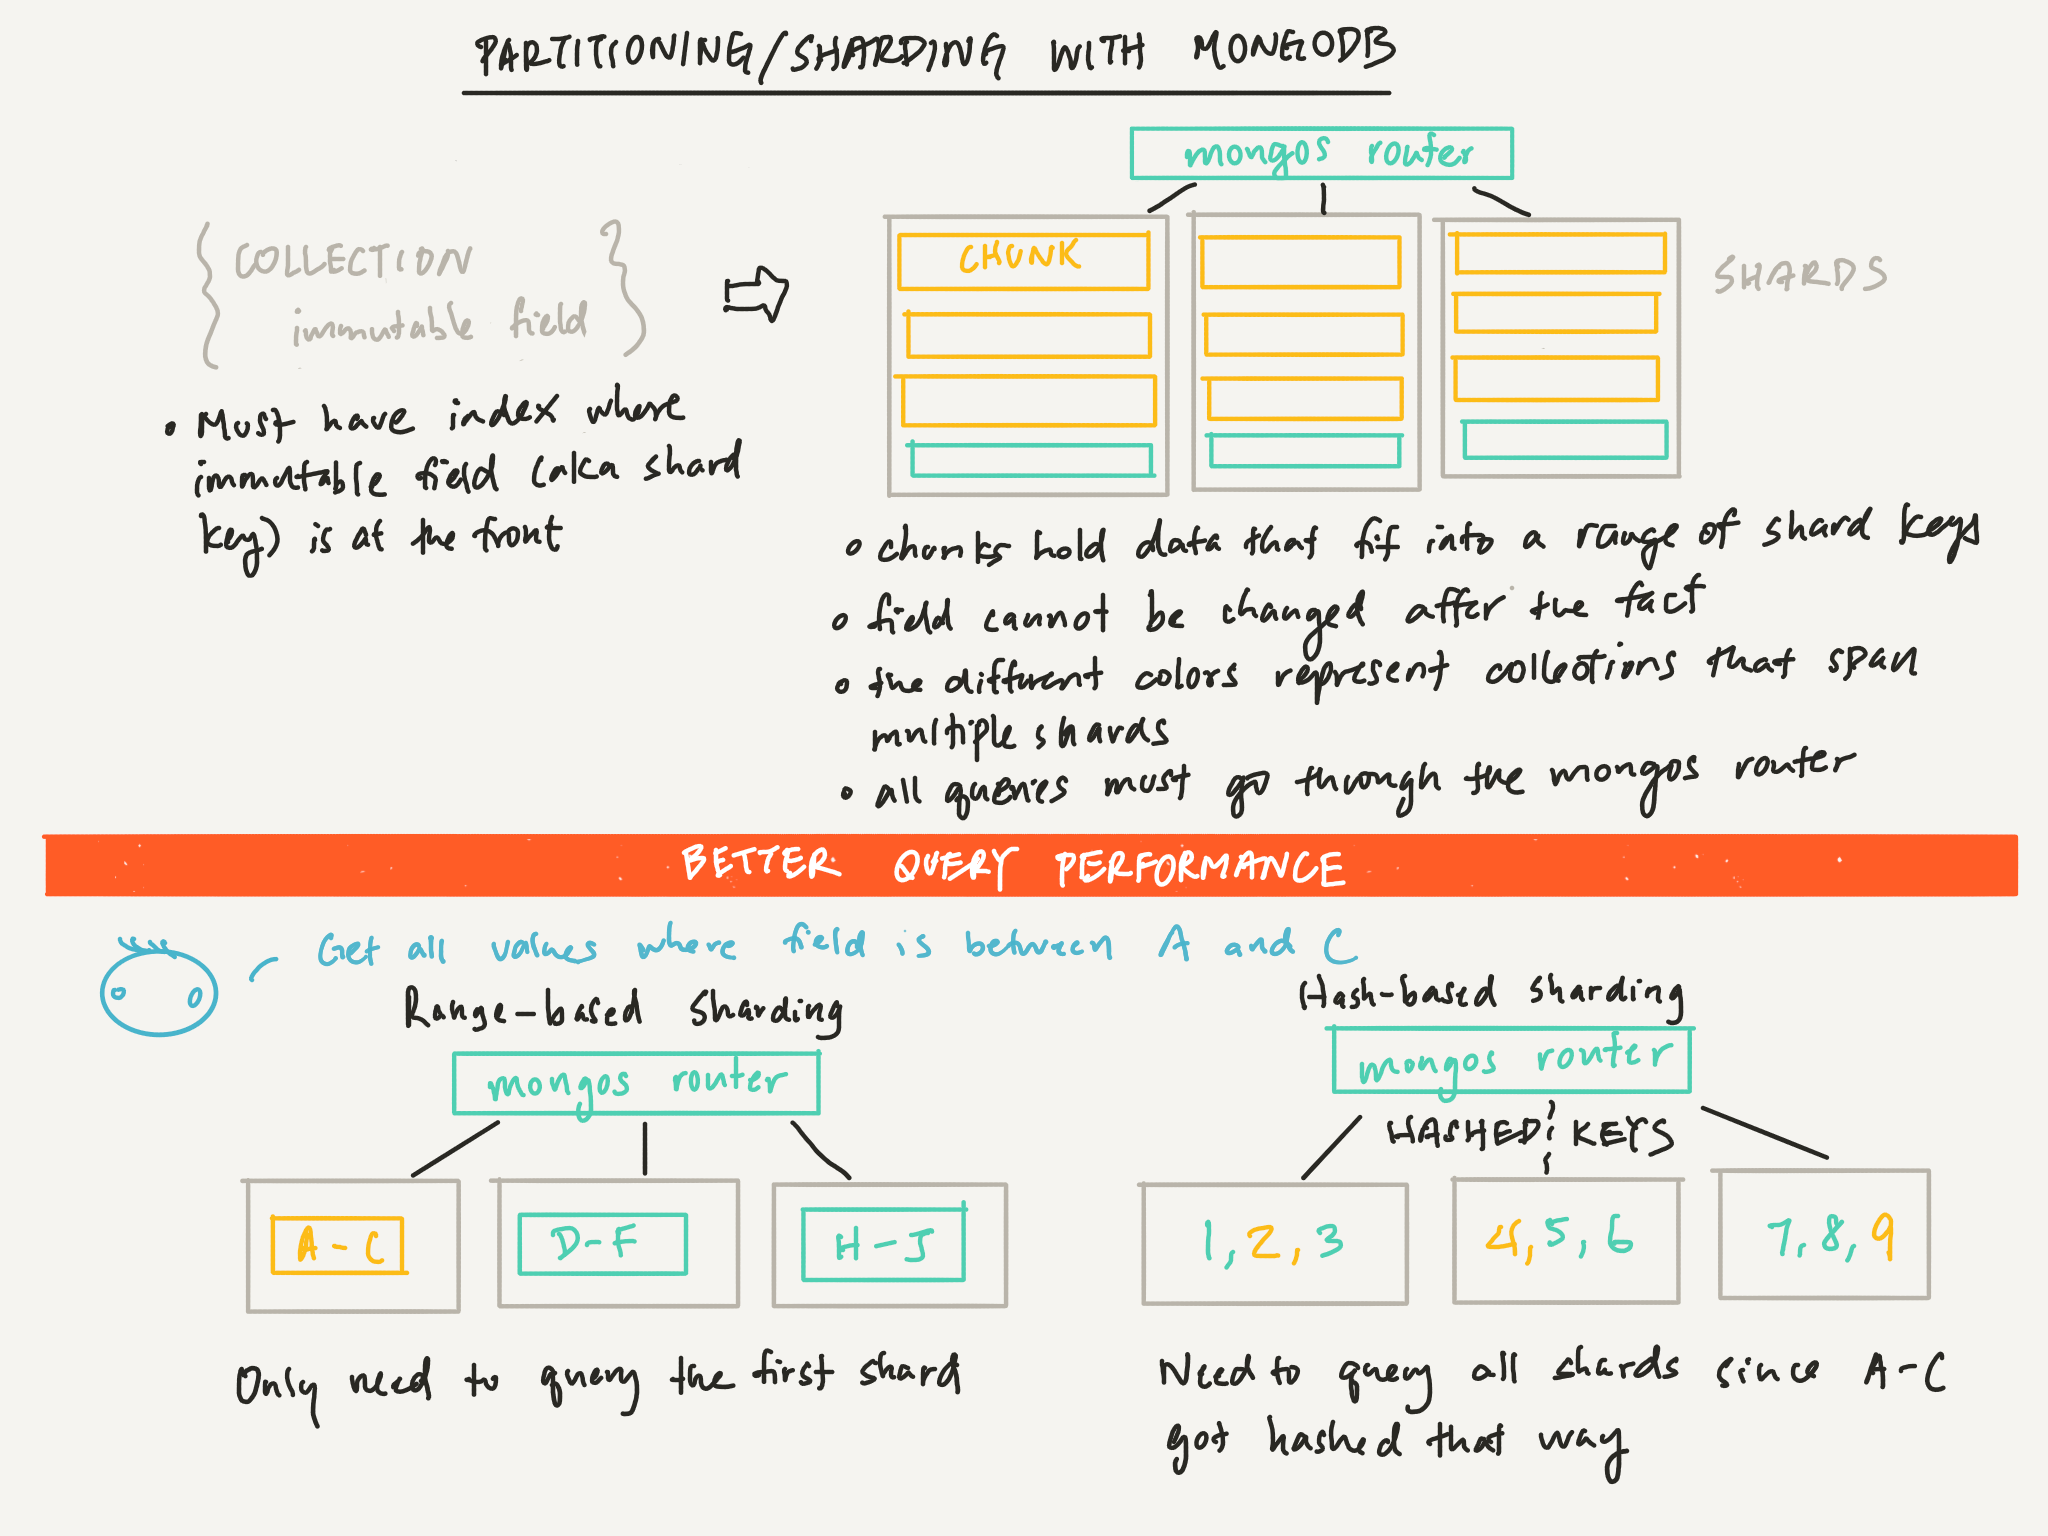 PARTITIONING/SHARDING WITH MONGODB
mongos router
{ COLLECTION
immutable field }
CHUNK
SHARDS
• Must have index where
immutable field (aka shard
key) is at the front
• chunks hold data that fit into a range of shard keys
• field cannot be changed after the fact
• the different colors represent collections that span
multiple shards
• all queries must go through the mongos router
BETTER QUERY PERFORMANCE
Get all values where field is between A and C
Range-based Sharding
mongos router
A-C
D-F
H-J
Only need to query the first shard
Hash-based sharding
mongos router
HASHED KEYS
1, 2, 3
4, 5, 6
7, 8, 9
Need to query all shards since A-C
got hashed that way